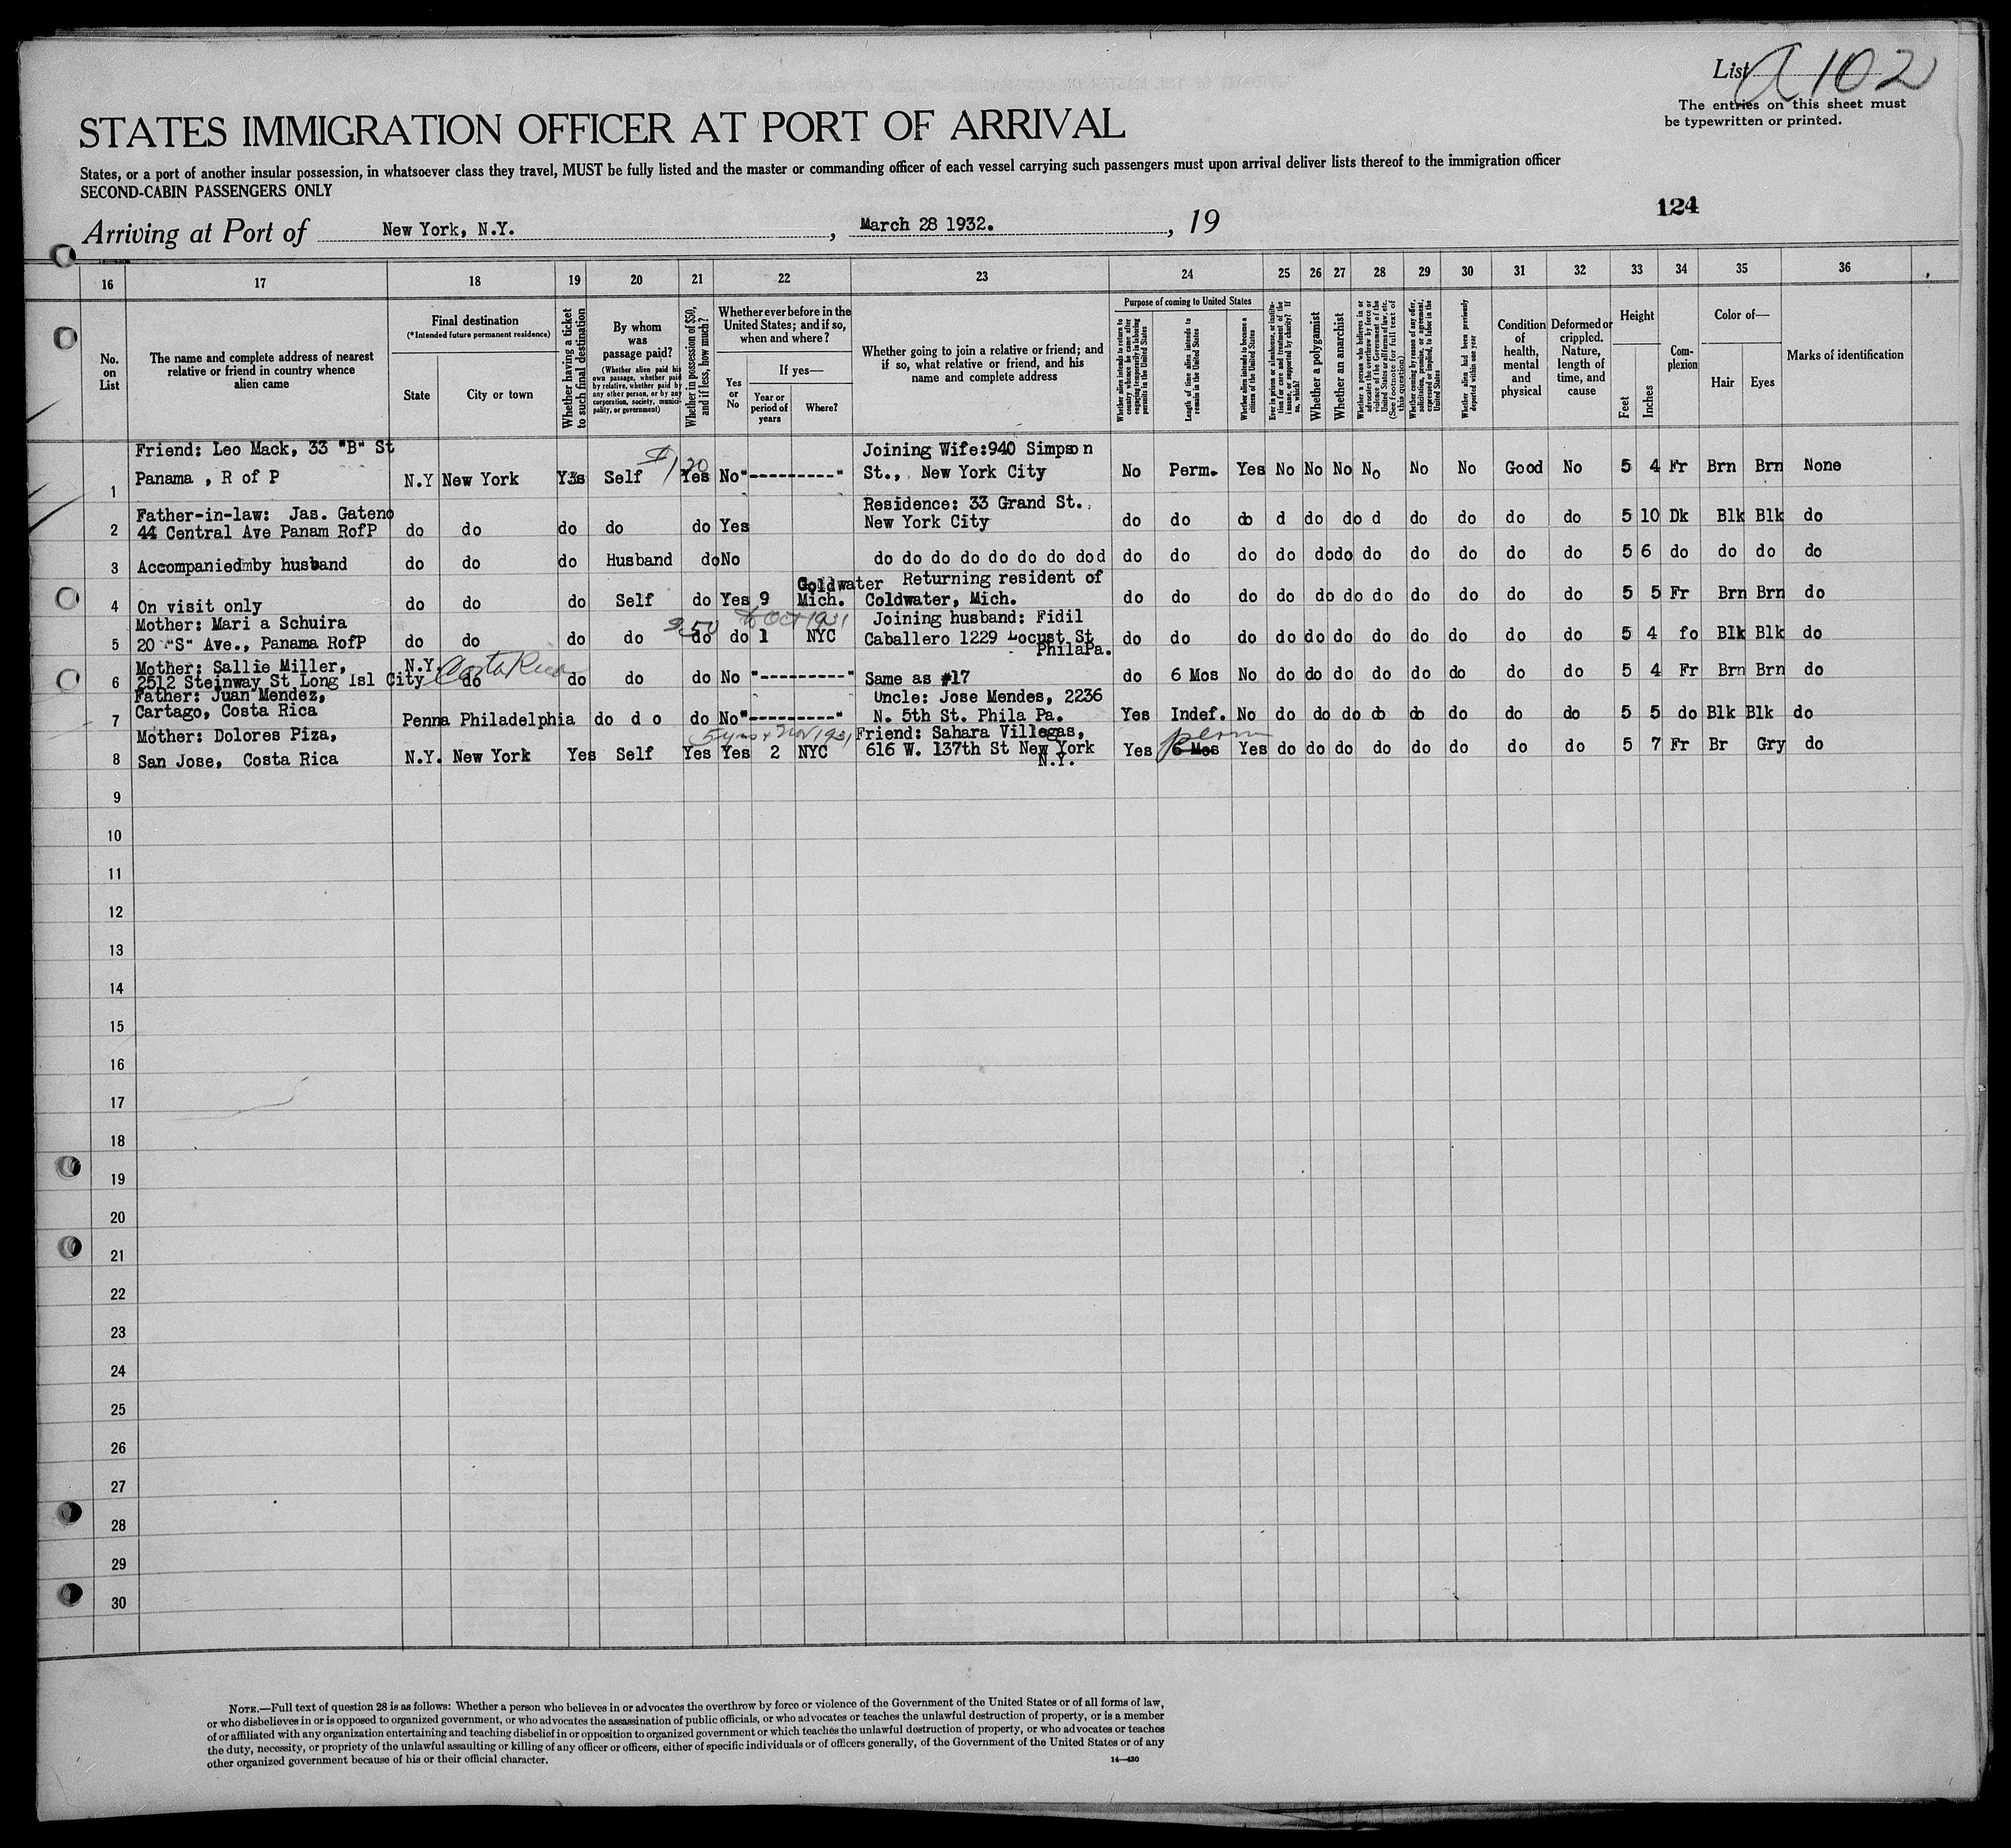 List A 102
The entries on this sheet must
be typewritten or printed.
STATES IMMIGRATION OFFICER AT PORT OF ARRIVAL
States, or a port of another insular possession, in whatsoever class they travel, MUST be fully listed and the master or commanding officer of each vessel carrying such passengers must upon arrival deliver lists thereof to the immigration officer
SECOND-CABIN PASSENGERS ONLY
124
Arriving at Port of New York, N.Y. , March 28 1932. , 19
16 17 18 19 20 21 22 23 24 25 26 27 28 29 30 31 32 33 34 35 36
No. on List
The name and complete address of nearest relative or friend in country whence alien came
Final destination
(*Intended future permanent residence)
State
City or town
Whether having a ticket to such final destination
By whom was passage paid?
(Whether alien paid his own passage, whether paid by relative, whether paid by any other person, or by any corporation, society, municipality, or government)
Whether in possession of $50, and if less, how much?
Whether ever before in the United States; and if so, when and where?
Yes or No
If yes—
Year or period of years
Where?
Whether going to join a relative or friend; and if so, what relative or friend, and his name and complete address
Purpose of coming to United States
Whether alien intends to return to country whence he came after engaging temporarily in laboring pursuits in the United States
Length of time alien intends to remain in the United States
Whether alien intends to become a citizen of the United States
Ever in prison or almshouse, or institution for care and treatment of the insane, or supported by charity? If so, which?
Whether a polygamist
Whether an anarchist
Whether a person who believes in or advocates the overthrow by force or violence of the Government of the United States or all forms of law, etc. (See footnote for full text of this question)
Whether coming by reason of any offer, solicitation, promise, or agreement, expressed or implied, to labor in the United States
Whether alien had been previously deported within one year
Condition of health, mental and physical
Deformed or crippled. Nature, length of time, and cause
Height
Feet
Inches
Complexion
Color of—
Hair
Eyes
Marks of identification
Friend: Leo Mack, 33 "B" St Joining Wife:940 Simpson
$120
1 Panama , R of P N.Y New York Yes Self Yes No"---------" St., New York City No Perm. Yes No No No No No No Good No 5 4 Fr Brn Brn None
Father-in-law: Jas. Gateno Residence: 33 Grand St.,
2 44 Central Ave Panam RofP do do do do do Yes New York City do do do d do do d do do do do 5 10 Dk Blk Blk do
3 Accompaniedmby husband do do do Husband do No do do do do do do do do dod do do do do do do do do do do do 5 6 do do do do
Coldwater Returning resident of
4 On visit only do do do Self do Yes 9 Mich. Coldwater, Mich. do do do do do do do do do do do 5 5 Fr Brn Brn do
Mother: Mari a Schuira 50 to Oct 1931 Joining husband: Fidil
5 20 "S" Ave., Panama RofP do do do do do do 1 NYC Caballero 1229 Locust St do do do do do do do do do do do 5 4 fo Blk Blk do
PhilaPa.
Mother: Sallie Miller, N.Y. Costa Rica
6 2512 Steinway St Long Isl City do do do do No "---------" Same as #17 do 6 Mos No do do do do do do do do 5 4 Fr Brn Brn do
Father: Juan Mendez, Uncle: Jose Mendes, 2236
7 Cartago, Costa Rica Penna Philadelphia do d o do No"---------" N. 5th St. Phila Pa. Yes Indef. No do do do do do do do do 5 5 do Blk Blk do
Mother: Dolores Piza, 5 yrs + Nov 1931 Friend: Sahara Villegas, perm
8 San Jose, Costa Rica N.Y. New York Yes Self Yes Yes 2 NYC 616 W. 137th St New York Yes 6 Mos Yes do do do do do do do do 5 7 Fr Br Gry do
N.Y.
9
10
11
12
13
14
15
16
17
18
19
20
21
22
23
24
25
26
27
28
29
30
NOTE.—Full text of question 28 is as follows: Whether a person who believes in or advocates the overthrow by force or violence of the Government of the United States or of all forms of law,
or who disbelieves in or is opposed to organized government, or who advocates the assassination of public officials, or who advocates or teaches the unlawful destruction of property, or is a member
of or affiliated with any organization entertaining and teaching disbelief in or opposition to organized government or which teaches the unlawful destruction of property, or who advocates or teaches
the duty, necessity, or propriety of the unlawful assaulting or killing of any officer or officers, either of specific individuals or of officers generally, of the Government of the United States or of any
other organized government because of his or their official character.
14—430